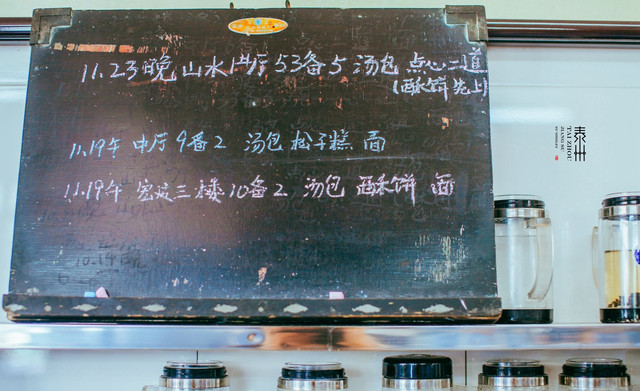 11.23晚 山水1#厅 53备5 汤包 点心二道
(酥饼先上)
11.19午 中厅 9备2 汤包 松子糕 面
11.19午 宴宾三楼 10备2 汤包 酥饼 面
10.19
泰州
TAI ZHOU
JIANG SU